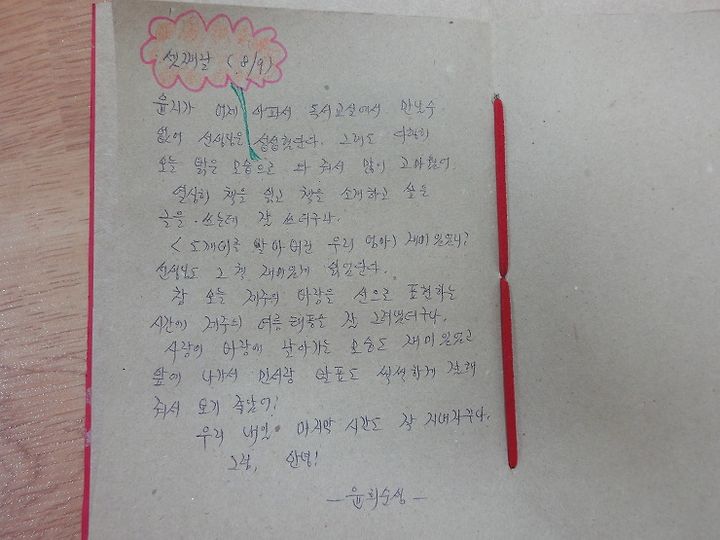 셋째날 (8/9)
윤지가 어제 아파서 독서교실에서 만날수
없어 선생님은 섭섭했단다. 그래도 다행히
오늘 밝은 모습으로 와 줘서 많이 고마웠어.
열심히 책을 읽고 책을 소개하고 싶은
글을 쓰는데 잘 쓰더구나.
<5만원을 팔아버린 우리 엄마> 재미있었니?
선생님도 그 책 재미있게 읽었단다.
참 오늘 제주의 바람을 선으로 표현하는
시간에 제주의 여름 태풍을 잘 그려냈더구나.
사람이 바람에 날아가는 모습도 재미있었고
앞에 나가서 민서랑 발표도 씩씩하게 잘해
줘서 보기 좋았어!
우리 내일 마지막 시간도 잘 지내자꾸나.
그럼, 안녕!
- 윤희순샘 -